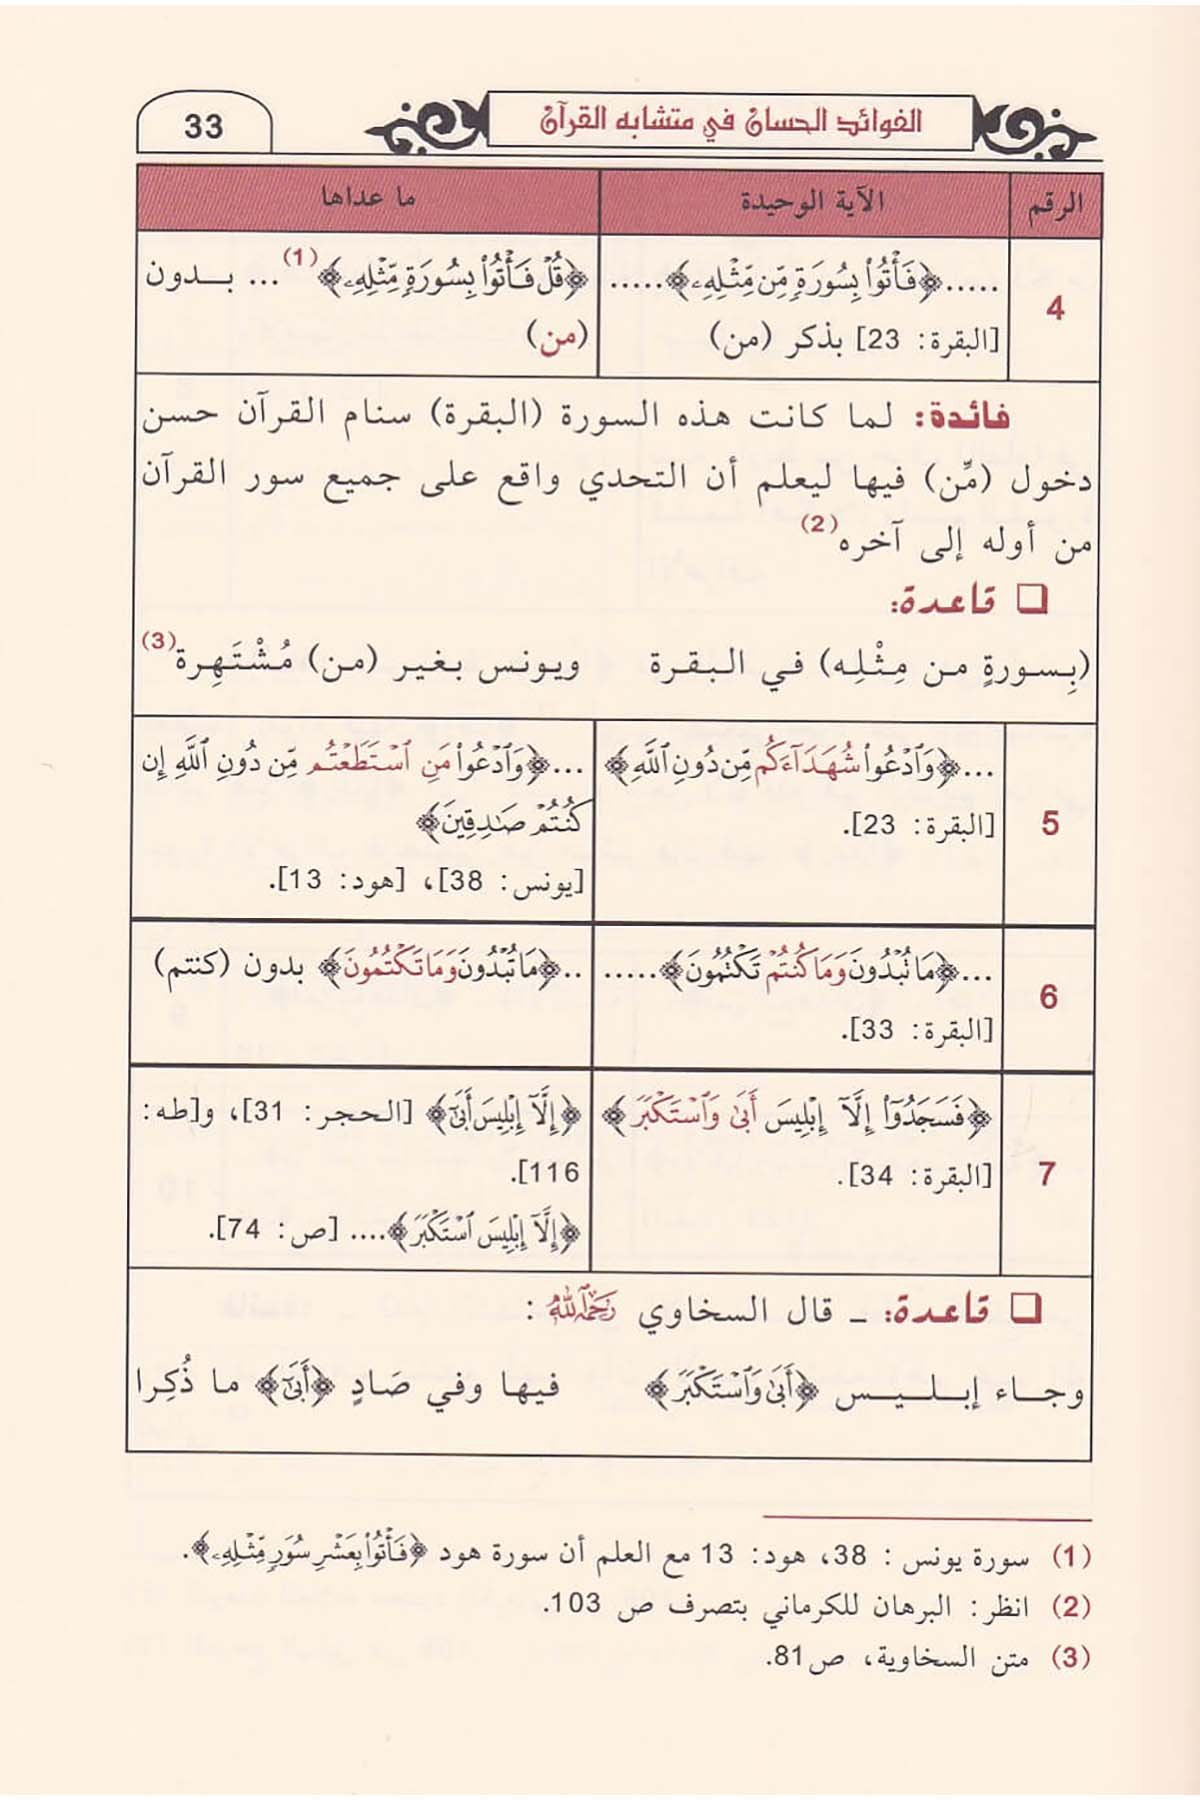 الفوائد الحسان في متشابه القرآن
33
الرقم
الآية الوحيدة
ما عداها
4
.....﴿فَأْتُوا۟ بِسُورَةٍ مِّن مِّثْلِهِۦ﴾.....
[البقرة: 23] بذكر (من)
﴿قُلْ فَأْتُوا۟ بِسُورَةٍ مِّثْلِهِۦ﴾(1) ... بـدون
(من)
فائدة: لما كانت هذه السورة (البقرة) سنام القرآن حسن
دخول (مِّن) فيها ليعلم أن التحدي واقع على جميع سور القرآن
من أوله إلى آخره(2)
❑ قاعدة:
(بِسورةٍ من مِثْلِه) في البقرة ويونس بغير (من) مُشْتَهِرة(3)
5
...﴿وَٱدْعُوا۟ شُهَدَآءَكُم مِّن دُونِ ٱللَّهِ﴾
[البقرة: 23].
...﴿وَٱدْعُوا۟ مَنِ ٱسْتَطَعْتُم مِّن دُونِ ٱللَّهِ إِن
كُنتُمْ صَـٰدِقِينَ﴾
[يونس: 38]، [هود: 13].
6
...﴿مَا تُبْدُونَ وَمَا كُنتُمْ تَكْتُمُونَ﴾.....
[البقرة: 33].
..﴿مَا تُبْدُونَ وَمَا تَكْتُمُونَ﴾ بدون (كنتم)
7
﴿فَسَجَدُوٓا۟ إِلَّآ إِبْلِيسَ أَبَىٰ وَٱسْتَكْبَرَ﴾
[البقرة: 34].
﴿إِلَّآ إِبْلِيسَ أَبَىٰٓ﴾ [الحجر: 31]، و[طه:
116].
﴿إِلَّآ إِبْلِيسَ ٱسْتَكْبَرَ﴾.... [ص: 74].
❑ قاعدة: ـ قال السخاوي رَحِمَهُ ٱللَّهُ :
وجـاء إبـلـيـس ﴿أَبَىٰ وَٱسْتَكْبَرَ﴾ فيها وفي صَادٍ ﴿أَبَىٰٓ﴾ ما ذُكِرا
(1) سورة يونس : 38، هود: 13 مع العلم أن سورة هود ﴿فَأْتُوا۟ بِعَشْرِ سُوَرٍ مِّثْلِهِۦ﴾.
(2) انظر: البرهان للكرماني بتصرف ص 103.
(3) متن السخاوية، ص81.